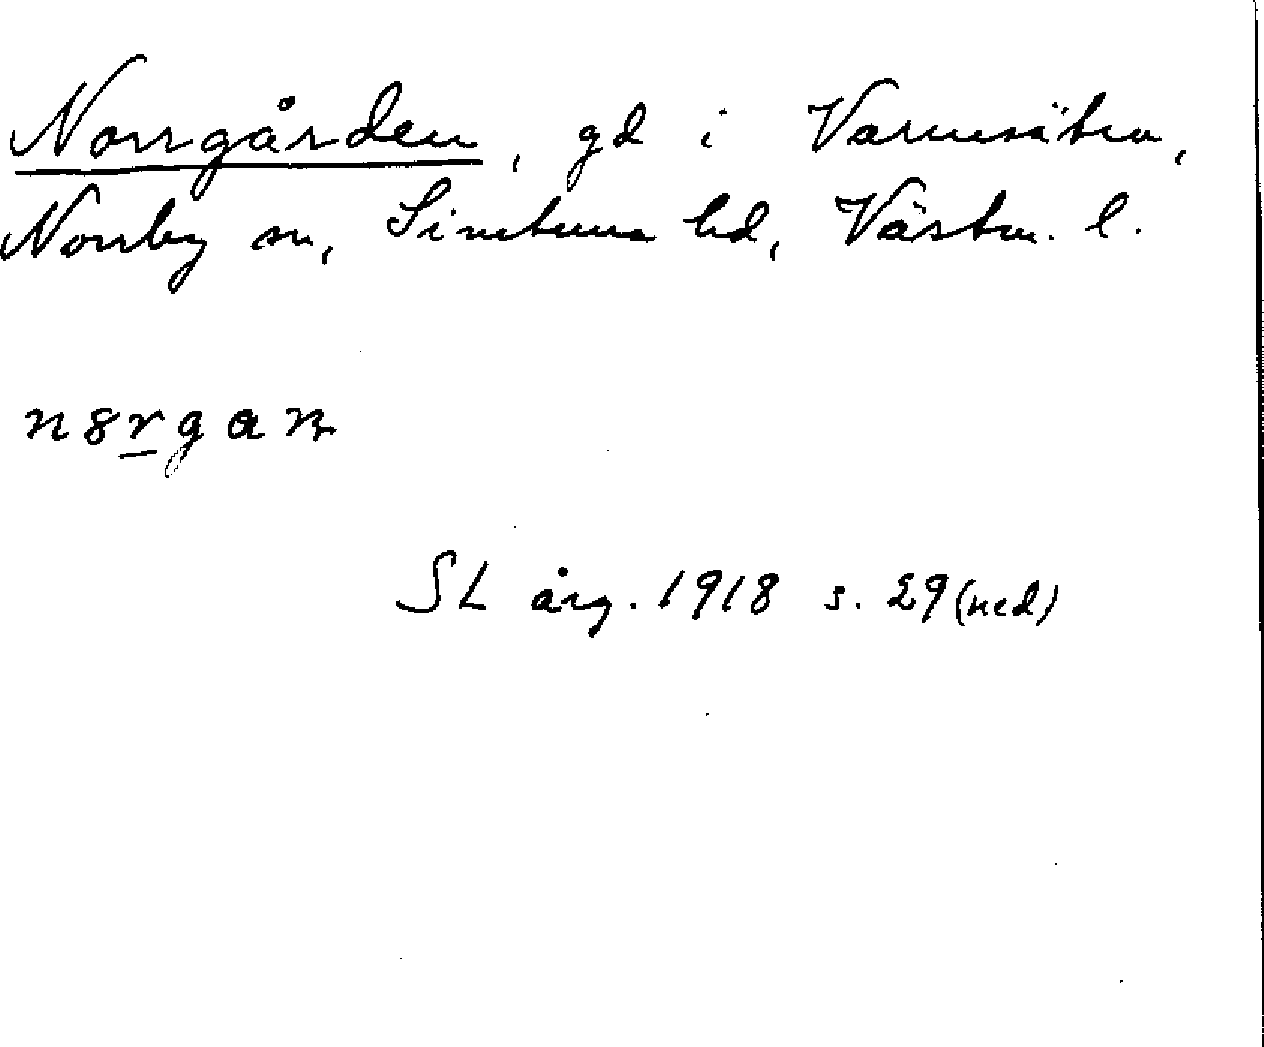 Norrgården, gd i Varmsätra,
Norrby sn, Simtuna hd, Västm. l.
n8rgan
SL årg. 1918 s. 29 (ned)